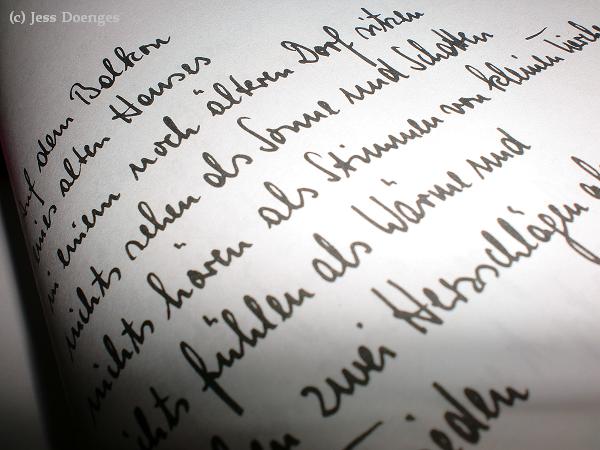 (c) Jess Doenges
auf dem Balkon
eines alten Hauses
in einem noch älteren Dorf sitzen
nichts sehen als Sonne und Schatten
nichts hören als Stimmen von
nichts fühlen als Wärme und
zwei Herzschlägen